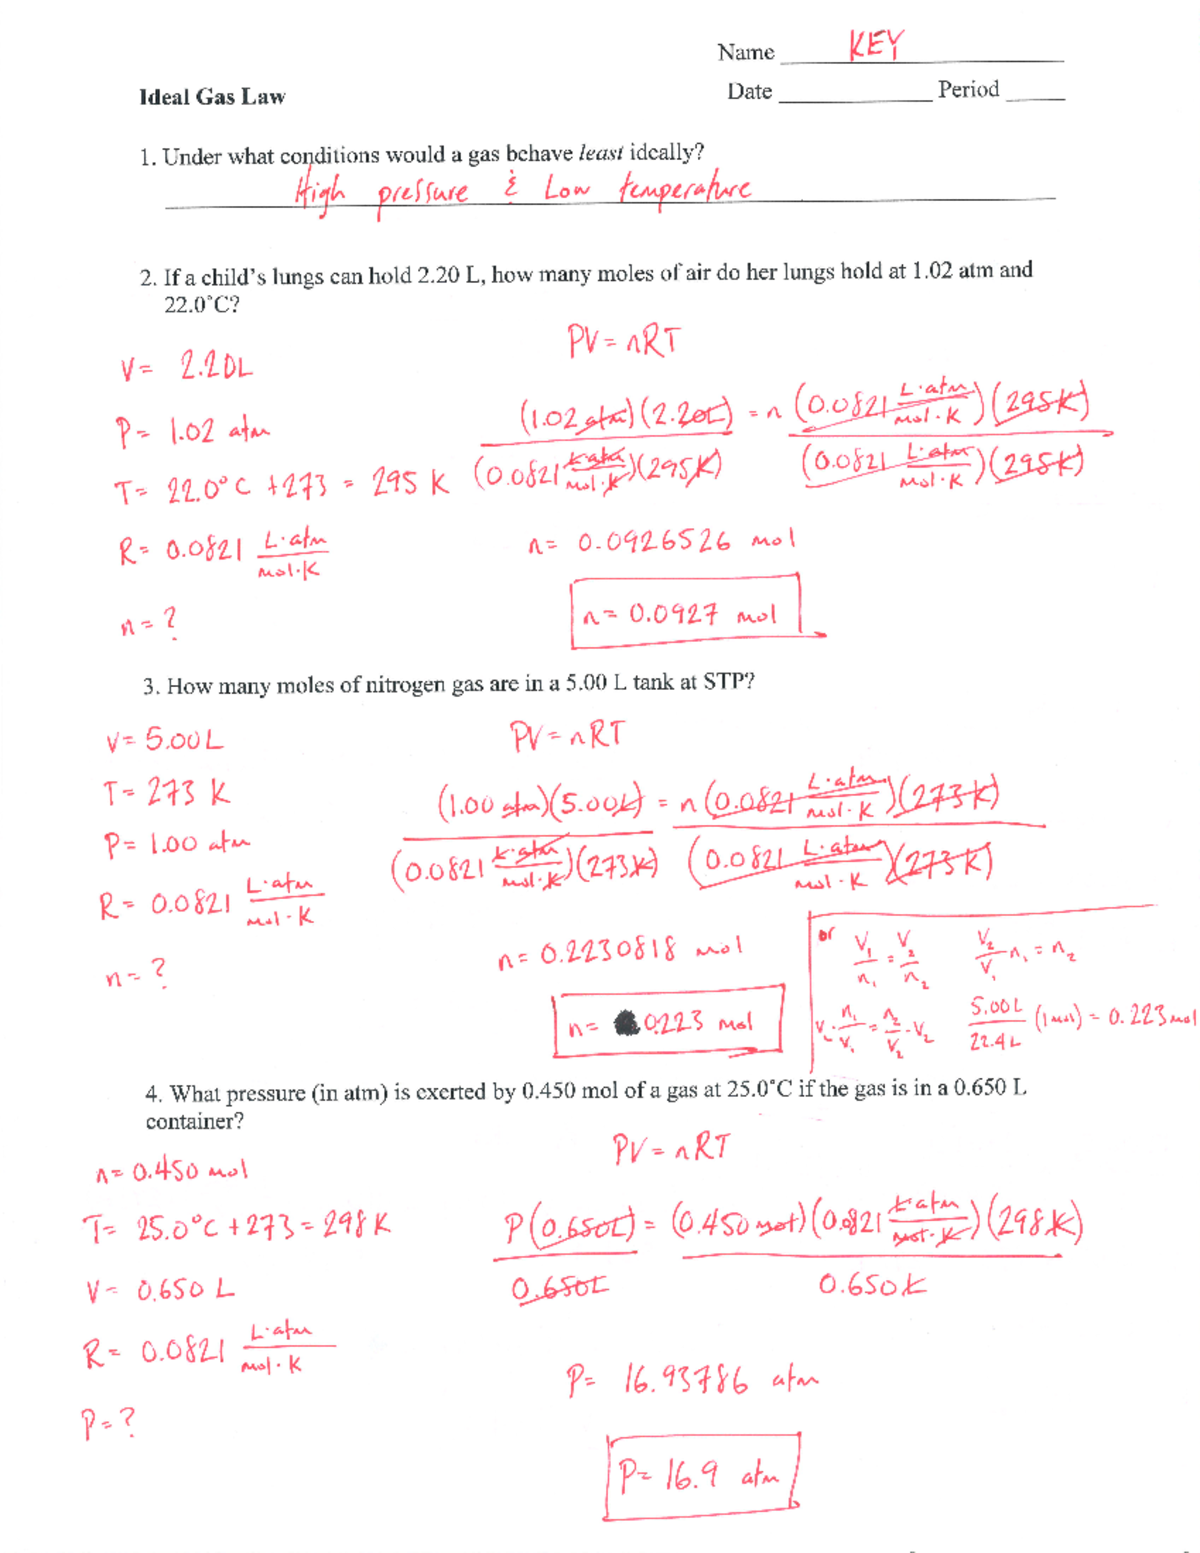 Name KEY
Ideal Gas Law
Date ____________ Period _____
1. Under what conditions would a gas behave least ideally?
High pressure & Low temperature
2. If a child's lungs can hold 2.20 L, how many moles of air do her lungs hold at 1.02 atm and
22.0°C?
PV = nRT
V = 2.20L
P = 1.02 atm
T = 22.0°C + 273 = 295 K
R = 0.0821 L·atm / mol·K
n = ?
(1.02 atm)(2.20L) / (0.0821 L·atm / mol·K)(295K) = n (0.0821 L·atm / mol·K)(295K) / (0.0821 L·atm / mol·K)(295K)
n = 0.0926526 mol
n = 0.0927 mol
3. How many moles of nitrogen gas are in a 5.00 L tank at STP?
V = 5.00L
T = 273 K
P = 1.00 atm
R = 0.0821 L·atm / mol·K
n = ?
PV = nRT
(1.00 atm)(5.00L) / (0.0821 L·atm / mol·K)(273K) = n (0.0821 L·atm / mol·K)(273K) / (0.0821 L·atm / mol·K)(273K)
n = 0.2230818 mol
n = .0223 mol
or V₁ / n₁ = V₂ / n₂
V₂ / V₁ n₁ = n₂
V₂ · n₁ / V₁ = n₂ / V₂ · V₂
5.00L / 22.4L (1 mol) = 0.223 mol
4. What pressure (in atm) is exerted by 0.450 mol of a gas at 25.0°C if the gas is in a 0.650 L
container?
n = 0.450 mol
T = 25.0°C + 273 = 298 K
V = 0.650 L
R = 0.0821 L·atm / mol·K
P = ?
PV = nRT
P(0.650L) / 0.650L = (0.450 mol)(0.0821 L·atm / mol·K)(298K) / 0.650L
P = 16.93786 atm
P = 16.9 atm